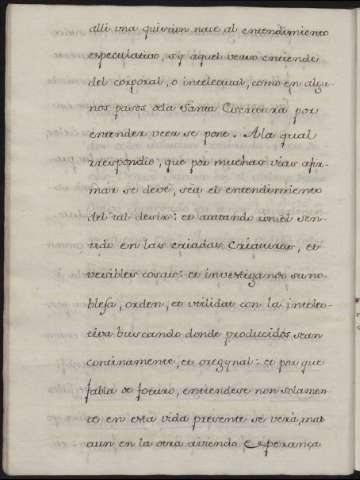 alli una quistion nace al entendimiento
especulativo, si aquel verso entiende
del corporal, o intelequal, como en algu-
nos pasos de la Santa Escritura por
entender veer se pone. A la qual
respondio, que por muchas vias afir-
mar se deve, sea el entendimiento
del tal desir: et catando con el sen-
tido en las criadas Criaturas, et
vesibles cosas: et investigando su no-
blesa, orden, et utilidat con la intelec-
tiva buscando donde producidos sean
continamente, et original: et por que
fabla de foturo, entiendese non solamen
te en esta vida presente se verà, mas
aun en la otra aviendo Esperança